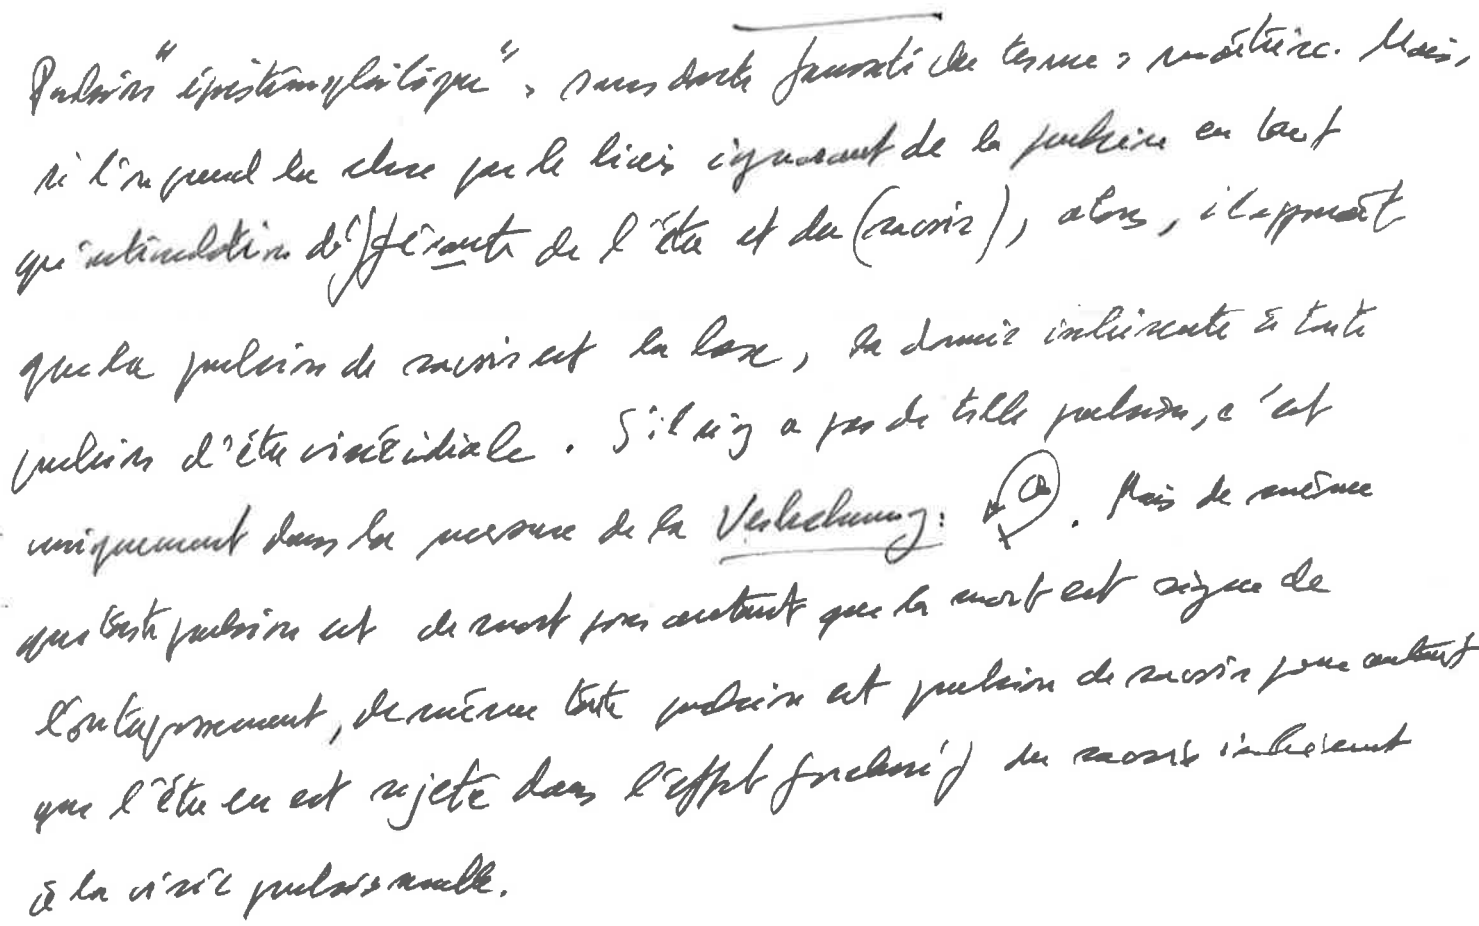 Pulsion "épistémophilique", sans doute fausseté du terme : . Mais,
si l'on prend la chose par le biais ignorant de la pulsion en tant
qu'articulation différante de l'être et du (savoir), alors, il apparaît
que la pulsion de savoir est la base, la donnée inhérente à toute
pulsion d'être . S'il n'y a pas de telle pulsion, c'est
uniquement dans la mesure de la : . Mais de même
que toute pulsion est de mort pour autant que la mort est signe de
, de même toute pulsion est pulsion de savoir pour autant
que l'être en est rejeté dans l'effet forclusif du savoir inhérent
à la visée pulsionnelle.